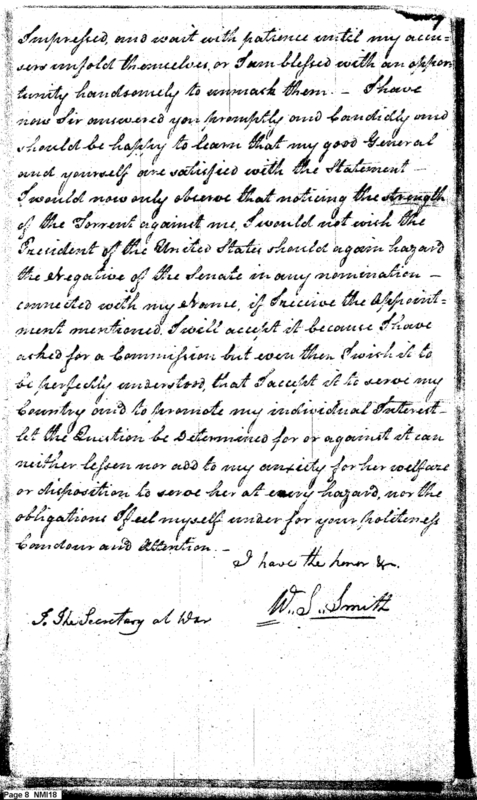 Impressed, and wait with patience until my accu-
sers unfold themselves, or I am blessed with an oppor-
tunity handsomely to unmask them. – I have
now Sir answered you promptly and Candidly and
should be happy to learn that my good General
and yourself are satisfied with the Statement –
I would now only observe that noticing the strength
of the Torrent against me, I would not wish the
President of the United States should again hazard
the Negative of the Senate in any nomination –
connected with my Name, if I receive the Appoint-
ment mentioned, I will accept it because I have
asked for a Commission but even then I wish it to
be perfectly understood, that I accept it to serve my
Country and to promote my individual Interest –
let the Question be Determined for or against it can
neither lessen nor add to my anxiety for her welfare
or disposition to serve her at every hazard, nor the
obligations I feel myself under for your politeness
Candour and Attention. –
I have the honor &c.
W. S. Smith
To The Secretary at War
Page 8 NMI18